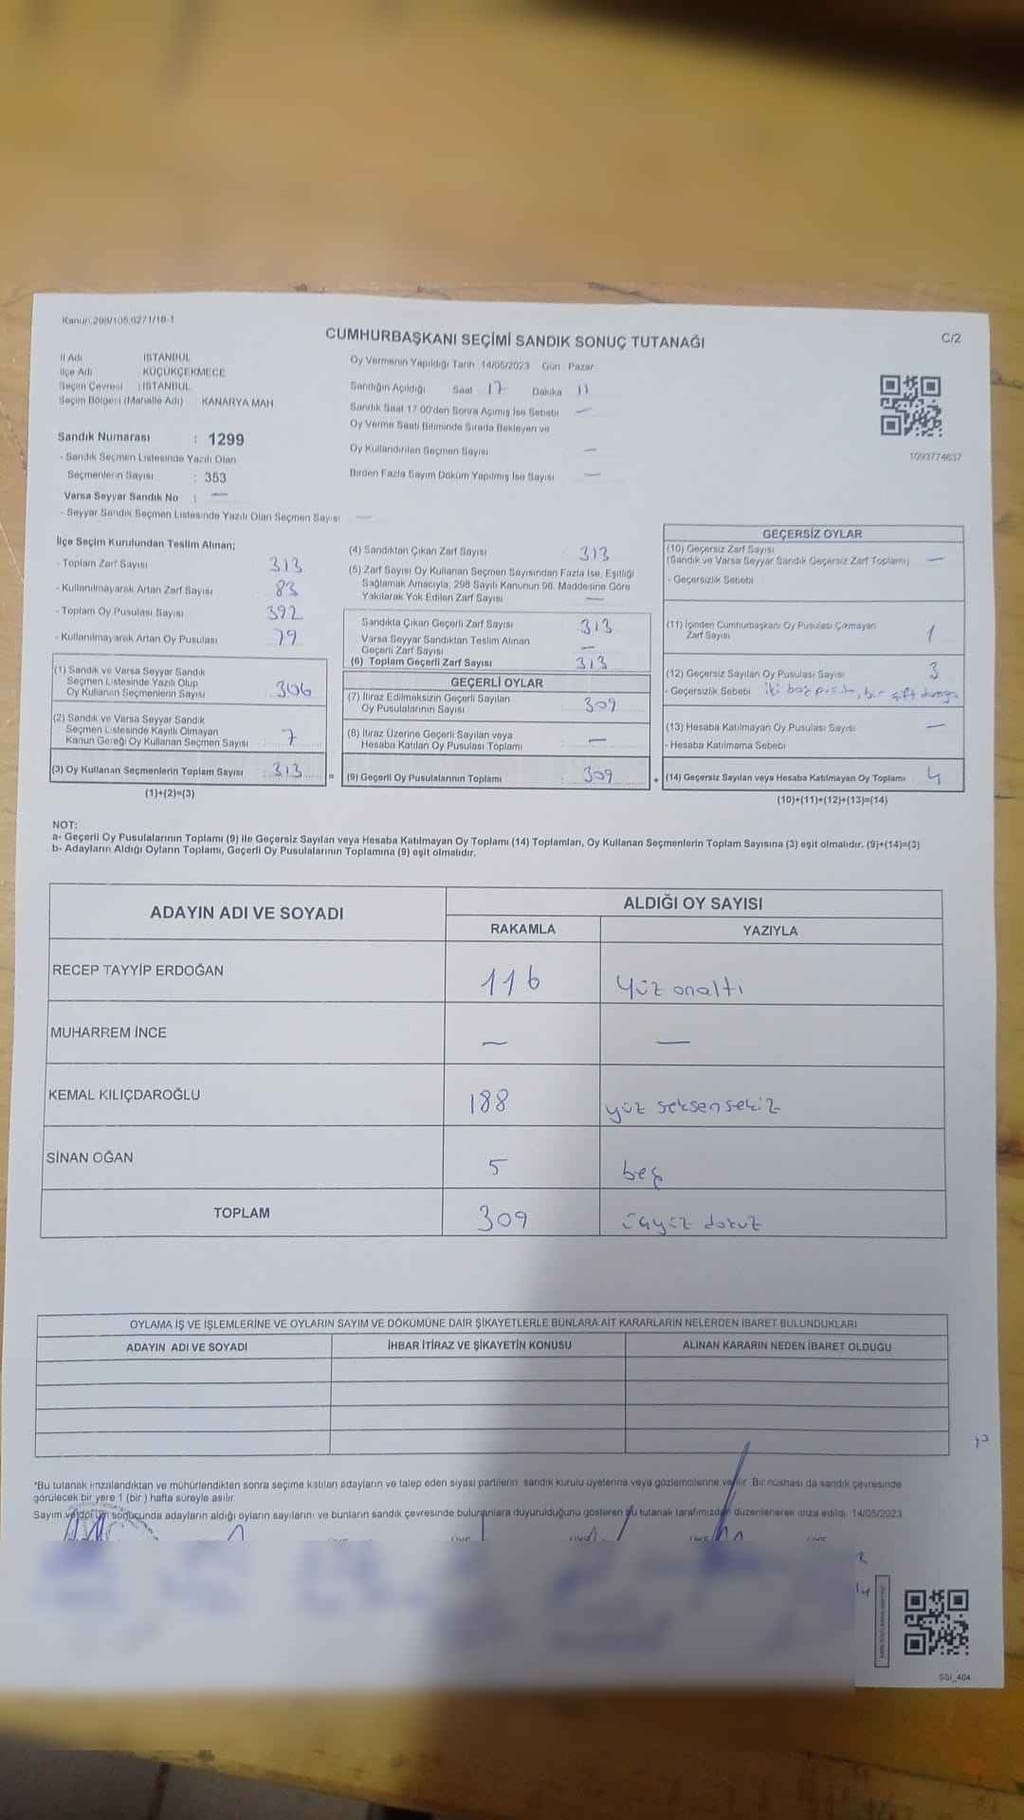 Kanun 298/105,6271/18-1
CUMHURBAŞKANI SEÇİMİ SANDIK SONUÇ TUTANAĞI
C/2
İl Adı İSTANBUL
İlçe Adı KÜÇÜKÇEKMECE
Seçim Çevresi : İSTANBUL
Seçim Bölgesi (Mahalle Adı) KANARYA MAH
Sandık Numarası : 1299
- Sandık Seçmen Listesinde Yazılı Olan
Seçmenlerin Sayısı : 353
Varsa Seyyar Sandık No : —
- Seyyar Sandık Seçmen Listesinde Yazılı Olan Seçmen Sayısı —
Oy Vermenin Yapıldığı Tarih 14/05/2023 Gün Pazar
Sandığın Açıldığı Saat 17 Dakika 11
Sandık Saat 17:00'den Sonra Açılmış İse Sebebi —
Oy Verme Saati Bitiminde Sırada Bekleyen ve
Oy Kullandırılan Seçmen Sayısı —
Birden Fazla Sayım Döküm Yapılmış İse Sayısı —
1093774637
İlçe Seçim Kurulundan Teslim Alınan;
- Toplam Zarf Sayısı 313
- Kullanılmayarak Artan Zarf Sayısı 83
- Toplam Oy Pusulası Sayısı 392
- Kullanılmayarak Artan Oy Pusulası 79
(1) Sandık ve Varsa Seyyar Sandık
Seçmen Listesinde Yazılı Olup
Oy Kullanan Seçmenlerin Sayısı 306
(2) Sandık ve Varsa Seyyar Sandık
Seçmen Listesinde Kayıtlı Olmayan
Kanun Gereği Oy Kullanan Seçmen Sayısı 7
(3) Oy Kullanan Seçmenlerin Toplam Sayısı 313 =
(1)+(2)=(3)
(4) Sandıktan Çıkan Zarf Sayısı 313
(5) Zarf Sayısı Oy Kullanan Seçmen Sayısından Fazla İse, Eşitliği
Sağlamak Amacıyla, 298 Sayılı Kanunun 98. Maddesine Göre
Yakılarak Yok Edilen Zarf Sayısı —
Sandıkta Çıkan Geçerli Zarf Sayısı 313
Varsa Seyyar Sandıktan Teslim Alınan
Geçerli Zarf Sayısı —
(6) Toplam Geçerli Zarf Sayısı 313
GEÇERLİ OYLAR
(7) İtiraz Edilmeksizin Geçerli Sayılan
Oy Pusulalarının Sayısı 309
(8) İtiraz Üzerine Geçerli Sayılan veya
Hesaba Katılan Oy Pusulası Toplamı —
(9) Geçerli Oy Pusulalarının Toplamı 309 +
GEÇERSİZ OYLAR
(10) Geçersiz Zarf Sayısı
(Sandık ve Varsa Seyyar Sandık Geçersiz Zarf Toplamı) —
- Geçersizlik Sebebi
(11) İçinden Cumhurbaşkanı Oy Pusulası Çıkmayan
Zarf Sayısı 1
(12) Geçersiz Sayılan Oy Pusulası Sayısı 3
- Geçersizlik Sebebi iki boş pusula, bir çift damga
(13) Hesaba Katılmayan Oy Pusulası Sayısı —
- Hesaba Katılmama Sebebi
(14) Geçersiz Sayılan veya Hesaba Katılmayan Oy Toplamı 4
(10)+(11)+(12)+(13)=(14)
NOT:
a- Geçerli Oy Pusulalarının Toplamı (9) ile Geçersiz Sayılan veya Hesaba Katılmayan Oy Toplamı (14) Toplamları, Oy Kullanan Seçmenlerin Toplam Sayısına (3) eşit olmalıdır. (9)+(14)=(3)
b- Adayların Aldığı Oyların Toplamı, Geçerli Oy Pusulalarının Toplamına (9) eşit olmalıdır.
ADAYIN ADI VE SOYADI ALDIĞI OY SAYISI
RAKAMLA YAZIYLA
RECEP TAYYİP ERDOĞAN 116 yüz onaltı
MUHARREM İNCE — —
KEMAL KILIÇDAROĞLU 188 yüz seksen sekiz
SİNAN OĞAN 5 beş
TOPLAM 309 üçyüz dokuz
OYLAMA İŞ VE İŞLEMLERİNE VE OYLARIN SAYIM VE DÖKÜMÜNE DAİR ŞİKAYETLERLE BUNLARA AİT KARARLARIN NELERDEN İBARET BULUNDUKLARI
ADAYIN ADI VE SOYADI İHBAR İTİRAZ VE ŞİKAYETİN KONUSU ALINAN KARARIN NEDEN İBARET OLDUĞU
*Bu tutanak imzalandıktan ve mühürlendikten sonra seçime katılan adayların ve talep eden siyasi partilerin sandık kurulu üyelerine veya gözlemcilerine verilir. Bir nüshası da sandık çevresinde
görülecek bir yere 1 (bir) hafta süreyle asılır.
Sayım ve döküm sonucunda adayların aldığı oyların sayılarını ve bunların sandık çevresinde bulunanlara duyurulduğunu gösteren bu tutanak tarafımızdan düzenlenerek imza edildi. 14/05/2023
SSI_404